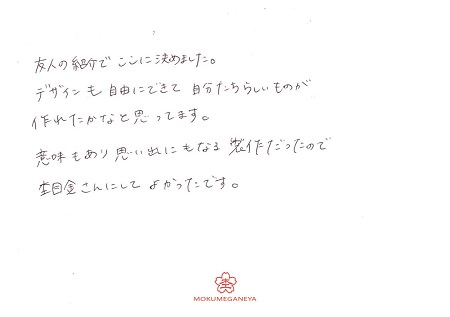 友人の紹介でここに決めました。
デザインも自由にできて自分たちらしいものが
作れたかなと思ってます。
意味もあり思い出にもなる製作だったので
杢目金さんにして よかったです。
杢
MOKUMEGANEYA